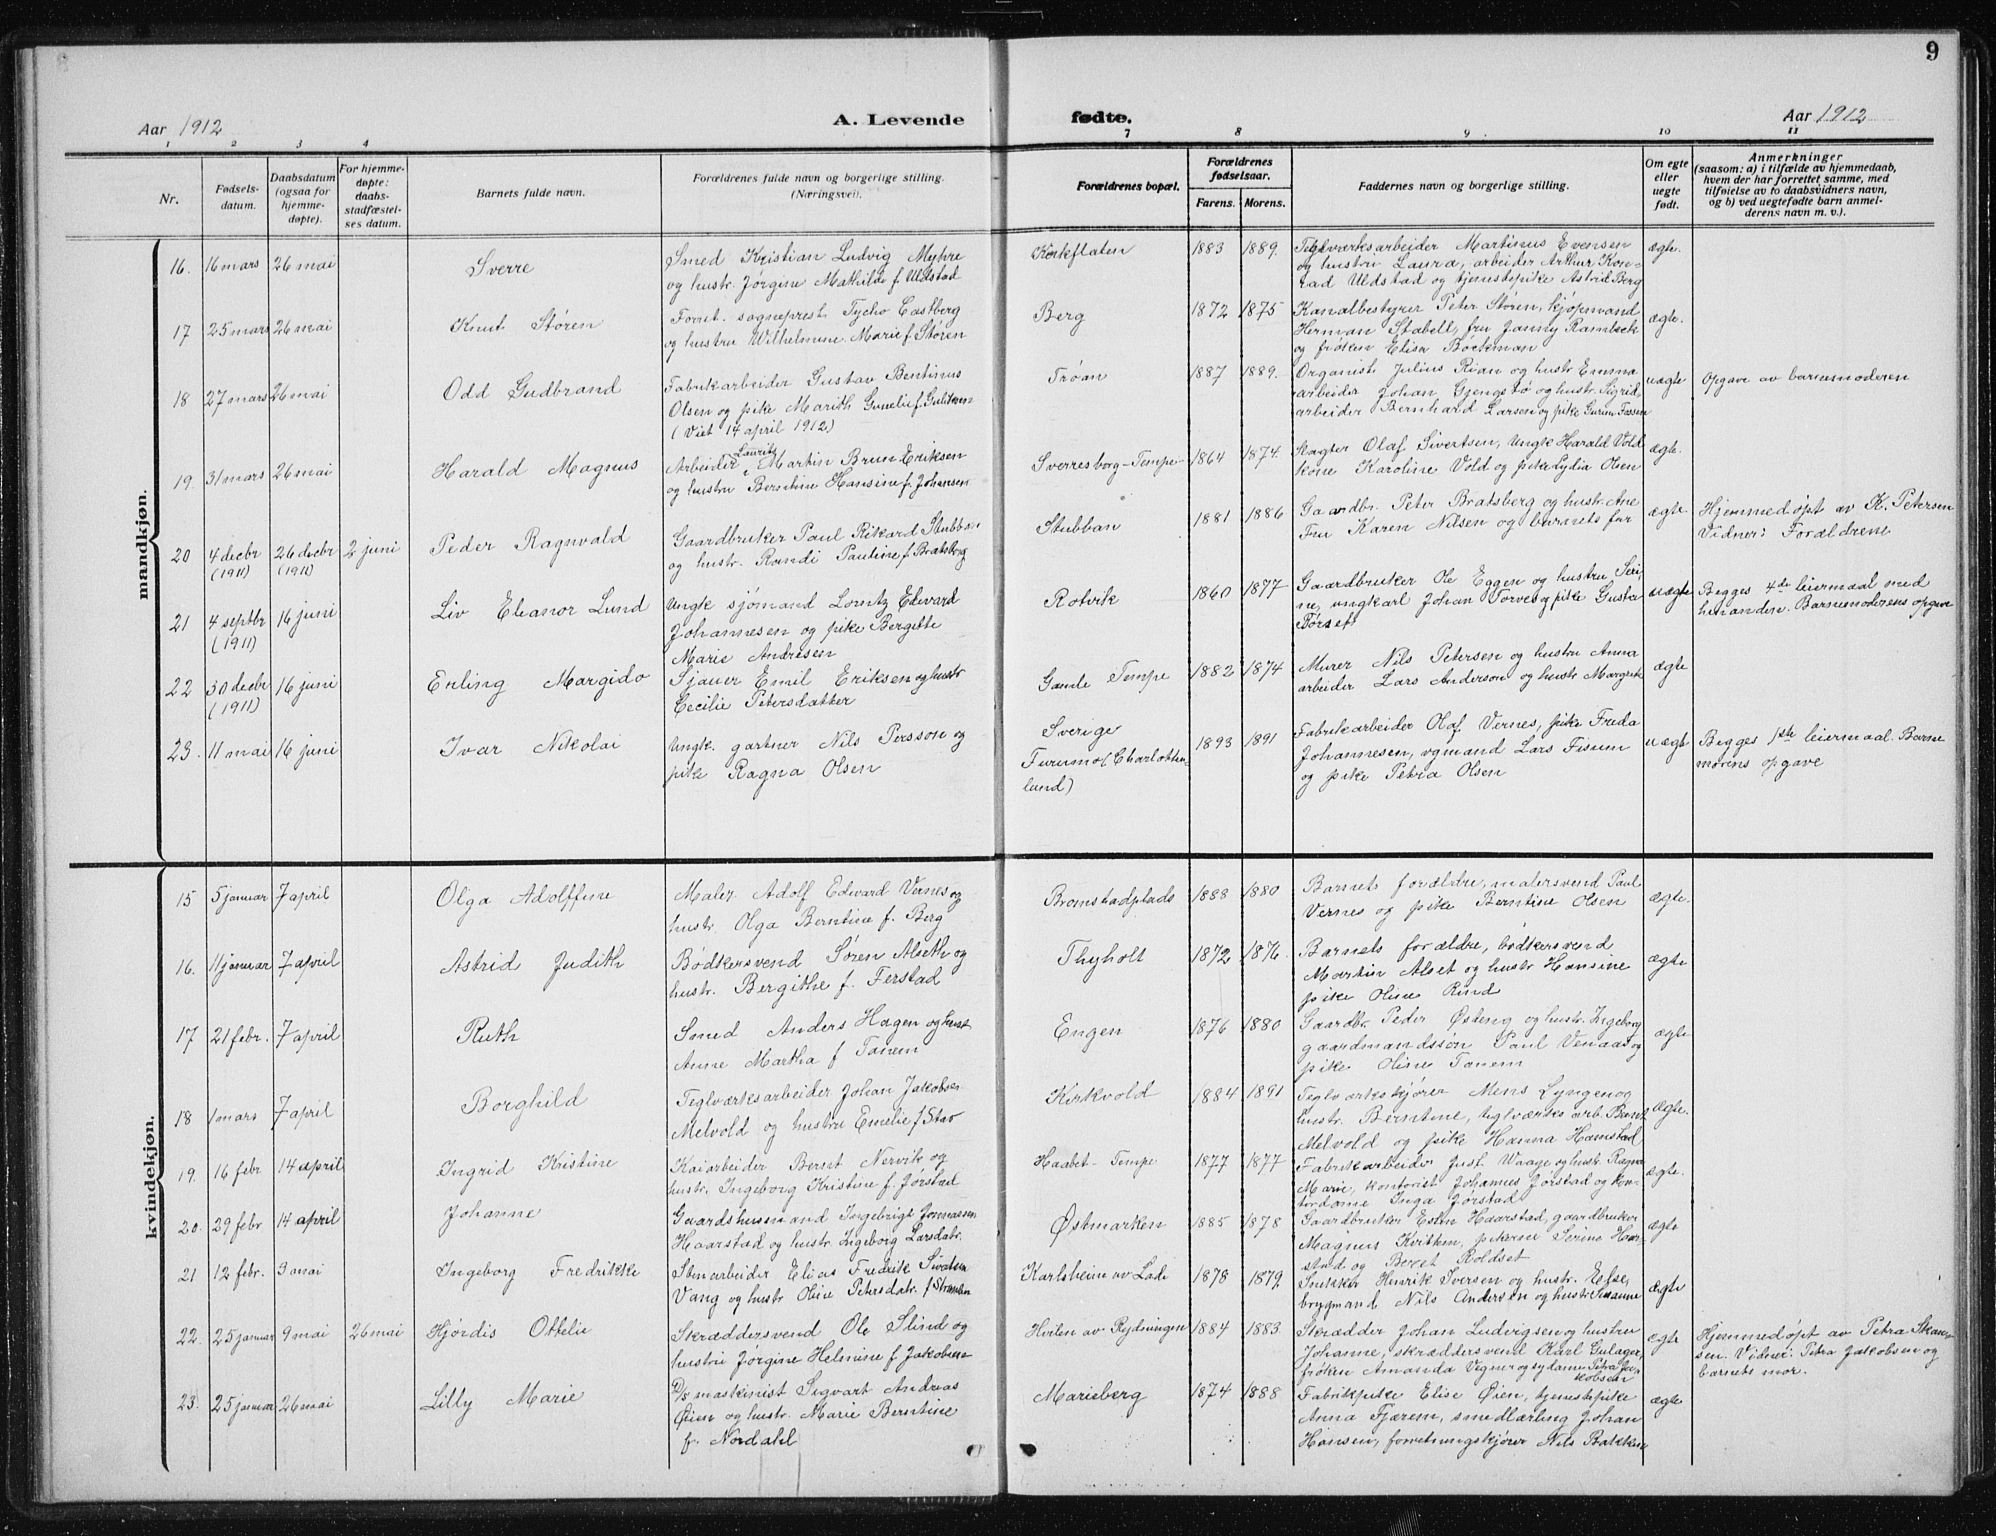 9
Aar 1912
A. Levende fødte.
Aar 1912
1 2 3 4 7 8 9 10 11
Nr.
Fødsels-
datum.
Daabsdatum
(ogsaa for
hjemme-
døpte).
For hjemme-
døpte:
daabs-
stadfæstel-
ses datum.
Barnets fulde navn.
Forældrenes fulde navn og borgerlige stilling.
(Næringsvei).
Forældrenes bopæl.
Forældrenes
fødselsaar.
Farens. Morens.
Faddernes navn og borgerlige stilling.
Om egte
eller
uegte
født.
Anmerkninger
(saasom: a) i tilfælde av hjemmedaab,
hvem der har forrettet samme, med
tilføielse av to daabsvidners navn,
og b) ved uegtefødte barn anmel-
derens navn m. v.).
mandkjøn.
16. 16 mars 26 mai Sverre
Smed Kristian Ludvig Myhre
og hustr. Jørgine Mathilde f. Uldstad
Korkflaten 1883 1889.
Teglværksarbeider Martinus Evensen
og hustru Laura, arbeider Arthur Kon-
rad Uldstad og tjenestepike Astrid Berg
ægte.
17 25 mars 26 mai Knut Støren
Forrit. sogneprest Tycho Castberg
og hustru Wilhelmine Marie f. Støren
Berg 1872 1875
Kanalbestyrer Peter Støren, kjøpmand
Herman Stabell, fru Janny Rambech
og frøken Elisa Bøckman
ægte.
18 27 mars 26 mai Odd Gudbrand
Fabrikarbeider Gustav Bentinus
Olsen og pike Marith Gunelie f. Guliksen
(Viet 14 april 1912)
Trøan 1887 1889.
Organist Julius Rian og hustr Emma
arbeider Johan Gjengstø og hustr. Sigrid,
arbeider Bernhard Larsen og pike Gurine Fossen
uægte
Opgave av barnemoderen
19. 31 mars 26 mai Harald Magnus
Lauritz
Arbeider Martin Brun Eriksen
og hustru Berntine Hansine f. Johansen
Sverresborg-Tempe 1864 1874.
Slagter Olaf Sivertsen, ungk Harald Vold
kone Karoline Vold og pike Lydia Olsen
ægte.
20 4 decbr 26 decbr 2 juni Peder Ragnvald
(1911) (1911)
Gaardbruker Paul Rikard Stubban
og hustr. Randi Pauline f. Bratsberg
Stubban 1881 1886
Gaardbr. Peter Bratsberg og hustr. Ane
Fru Karen Nilsen og barnets far
ægte
Hjemmedøpt av K. Petersen
Vidner: Forældrene
21 4 septbr 16 juni Liv Eleanor Lund
(1911)
Ungk sjømand Lorntz Edvard
Johannesen og pike Bergitte
Marie Andresen
Rotvik 1860 1877
Gaardbruker Ole Eggen og hustru Seri-
ne, ungkarl Johan Torves og pike Gusta
Børset
uægte
Begges 4de leiermaal med
hinanden. Barnemoderens opgave
22 30 decbr 16 juni Erling Margido
(1911)
Sjauer Emil Eriksen og hustr
Cecilie Petersdatter
Gamle Tempe 1882 1874
Murer Nils Petersen og hustru Anna
arbeider Lars Anderson og hustr Margrete
ægte
23. 11 mai 16 juni Ivar Nikolai
Ungk. gartner Nils Persson og
pike Ragna Olsen
Sverige
Furumo (Charlotten-
lund)
1893 1891
Fabrikarbeider Olaf Vernes, pike Freda
Johannesen, vgmand Lars Fisum
og pike Petra Olsen
uægte
Begges 1ste leiermaal. Barne
morens opgave
kvindekjøn.
15 5 januar 7 april Olga Adolffine
Maler Adolf Edvard Vernes og
hustr. Olga Berntine f. Berg
Bromstadplads 1888 1880
Barnets forældre, malersvend Paul
Vernes og pike Berntine Olsen
ægte.
16. 11 januar 7 april Astrid Judith
Bødkersvend Søren Alseth og
hustr. Bergithe f. Ferstad
Thyholt 1872 1876
Barnets forældre, bødkersvend
Martin Alset og hustr Hansine
pike Oline Rind
ægte
17 21 febr. 7 april Ruth
Smed Anders Hagen og hust
Anne Martha f Tanem
Engen 1876 1880
Gaardbr. Peder Østeng og hustr. Ingeborg
gaardmandssøn Paul Venaas og
pike Oline Tanem
ægte
18 1 mars 7 april Borghild
Teglværksarbeider Johan Jakobsen
Melvold og hustru Emelie f Stav
Kirkvold 1884 1891
Teglværkskjører Mens Lyngen og
hustr. Berntine, teglværks arb. Bernt
Melvold og pike Hanna Hamstad
ægte.
19. 16 febr 14 april Ingrid Kristine
Kaiarbeider Bernt Nervik og
hustr. Ingeborg Kristine f. Jørstad
Haabet-Tempe 1877 1877
Fabrikarbeider Just Waage og hustr. Ragna
Marie, kontorist Johannes Jørstad og kon-
tordame Inga Jørstad
ægte.
20. 29 febr 14 april Johanne
Gaardshusmand Ingebrigt Jonnassen
Haarstad og hustr. Ingeborg Larsdatr.
Østmarken 1885 1878
Gaardbruker Esten Haarstad, gaardbruker
Magnus Kvithem, pikerne Serine Haar-
stad og Beret Roldset
ægte
21 12 febr. 9 mai Ingeborg Fredrikke
Stenarbeider Elias Fredrik Sivatsen
Vang og hustr Oline Petersdatr. f Strømlen
Karlsheim av Lade 1878 1879
Snekker Henrik Iversen og hustr. Else,
brygmand Nils Andersen og hustr. Susanne
ægte
22. 25 januar 9 mai 26 mai Hjørdis Ottelie
Skræddersvend Ole Slind og
hustru Jørgine Helmine f Jakobsen
Hvilen av Rydningen 1884 1883.
Skrædder Johan Ludvigsen og hustru
Johanne, skræddersvend Karl Gulager,
frøken Amanda Vegner og sydame Petra Ja-
kobsen
ægte
Hjemmedøpt av Petra Skan-
sen. Vidner: Petra Jakobsen og
barnets mor.
23. 25 januar 26 mai Lilly Marie
D/s maskinist Sigvart Andreas
Øien og hustr. Marie Berntine
f. Nordahl
Marieberg 1874 1888
Fabrikpike Elise Øien, tjenestepike
Anna Fjærem, smedlærling Johan
Hansen, forretningskjører Nils Bakken
ægte